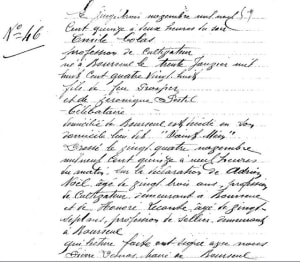 Le vingt trois novembre mil neuf
cent quinze à deux heures du soir
N° 46
Emile Colas
profession de Cultivateur
né à Bourseul le trente Janvier mil
huit Cent quatre Vingt huit
fils de feu Prosper
et de
Célibataire
domicilié de Bourseul est décédé en son
domicile lieu dit "Saint Méen"
Dressé le vingt quatre novembre
mil neuf Cent quinze à neuf heures
du matin, Sur la déclaration de
Noël âgé de vingt trois ans, profession
de Cultivateur, demeurant à Bourseul
et de Honoré âgé de vingt
sept ans, profession de Sellier, demeurant
à Bourseul
qui lecture faite ont signé avec nous
maire de Bourseul